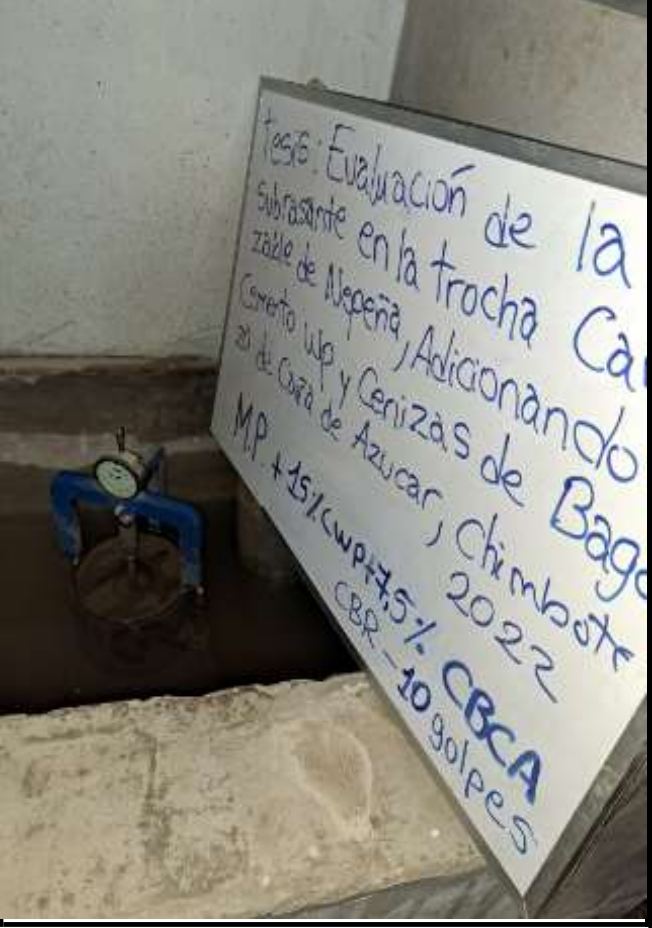 tesis: Evaluación de la
subrasante en la trocha Ca
zable de Nepeña, Adicionando
Cemento Wp y Cenizas de Baga
zo de Caña de Azucar, Chimbote
2022
M.P. +15% CWP+7,5% CBCA
CBR - 10 golpes